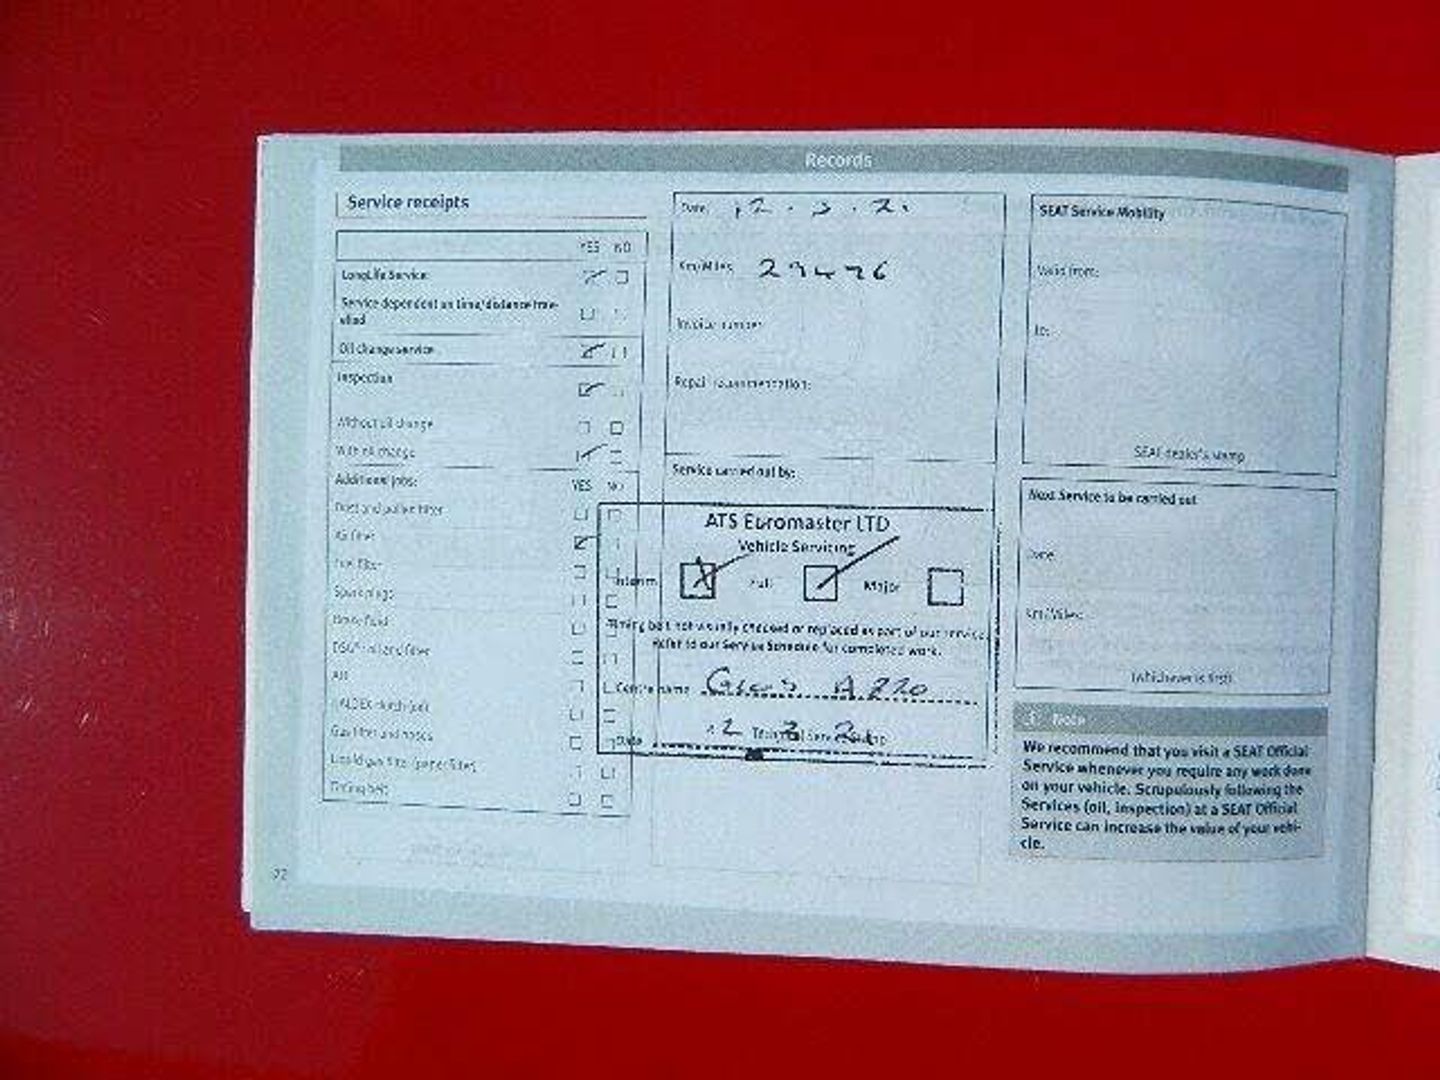 Records
Service receipts
YES NO
LongLife Service:
Service dependent on time/distance trav-
elled
Oil change service
Inspection
Without oil change
With oil change
Additional jobs:
YES NO
Dust and pollen filter
Air filter
Fuel filter
Spark plugs
Brake fluid
DSG® oil and filter
HALDEX clutch (oil)
Gas filter and hoses
Liquid gas filter (paper filter)
Timing belt
22
Date:
Km/Miles:
Invoice number:
Repair recommendation:
Service carried out by:
ATS Euromaster LTD
Vehicle Servicing
Interim Full Major
Timing belt not visually checked or replaced as part of our service.
Refer to our Service Schedule for completed work.
Centre name
Date 12 3 21
SEAT Service Mobility
Valid from:
to:
SEAT dealer's stamp
Next Service to be carried out
Date:
Km/Miles:
(whichever is first)
Note
We recommend that you visit a SEAT Official
Service whenever you require any work done
on your vehicle. Scrupulously following the
Services (oil, inspection) at a SEAT Official
Service can increase the value of your vehi-
cle.